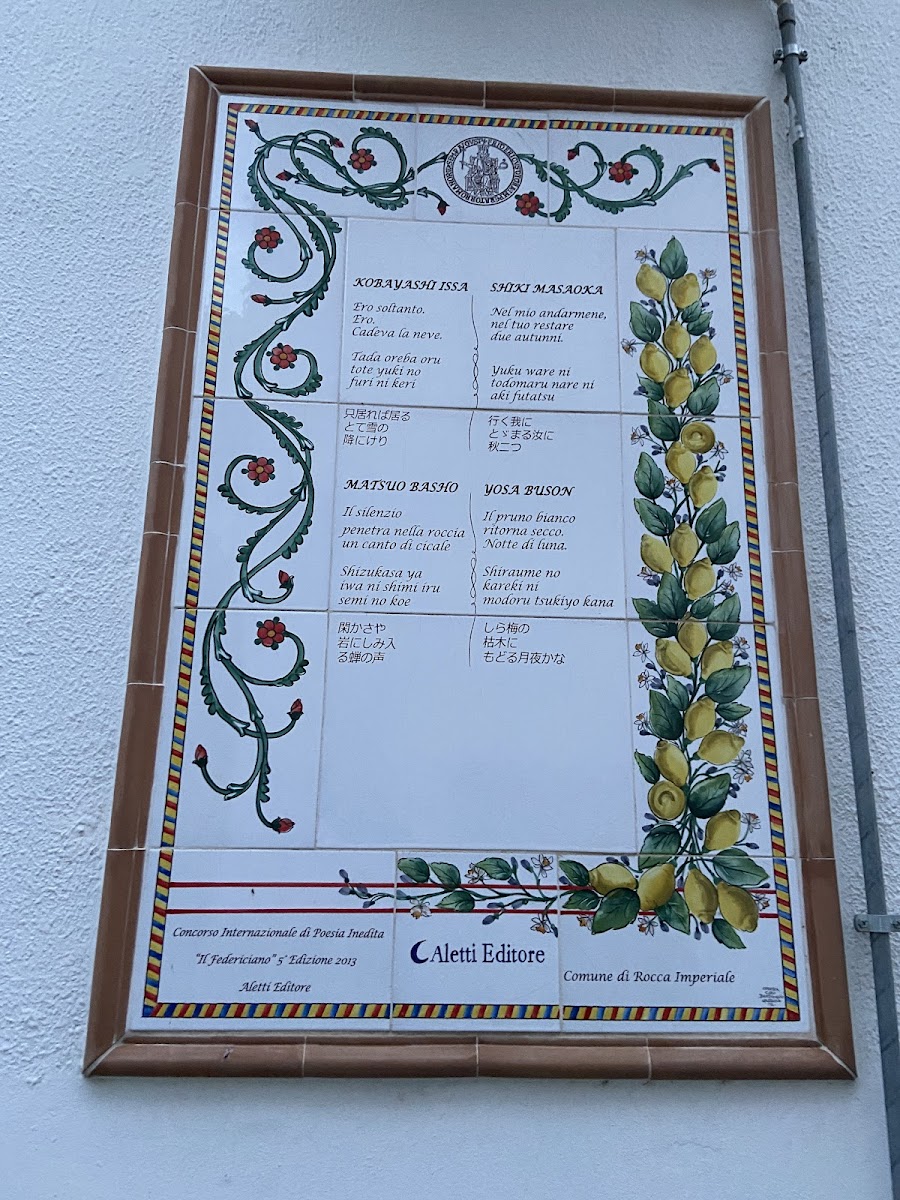 KOBAYASHI ISSA
Ero soltanto.
Ero.
Cadeva la neve.
Tada oreba oru
tote yuki no
furi ni keri
只居れば居る
とて雪の
降にけり
SHIKI MASAOKA
Nel mio andarmene,
nel tuo restare
due autunni.
Yuku ware ni
todomaru nare ni
aki futatsu
行く我に
とゞまる汝に
秋二つ
MATSUO BASHO
Il silenzio
penetra nella roccia
un canto di cicale
Shizukasa ya
iwa ni shimi iru
semi no koe
閑かさや
岩にしみ入
る蝉の声
YOSA BUSON
Il pruno bianco
ritorna secco.
Notte di luna.
Shiraume no
kareki ni
modoru tsukiyo kana
しら梅の
枯木に
もどる月夜かな
Concorso Internazionale di Poesia Inedita
"Il Federiciano" 5° Edizione 2013
Aletti Editore
Aletti Editore
Comune di Rocca Imperiale